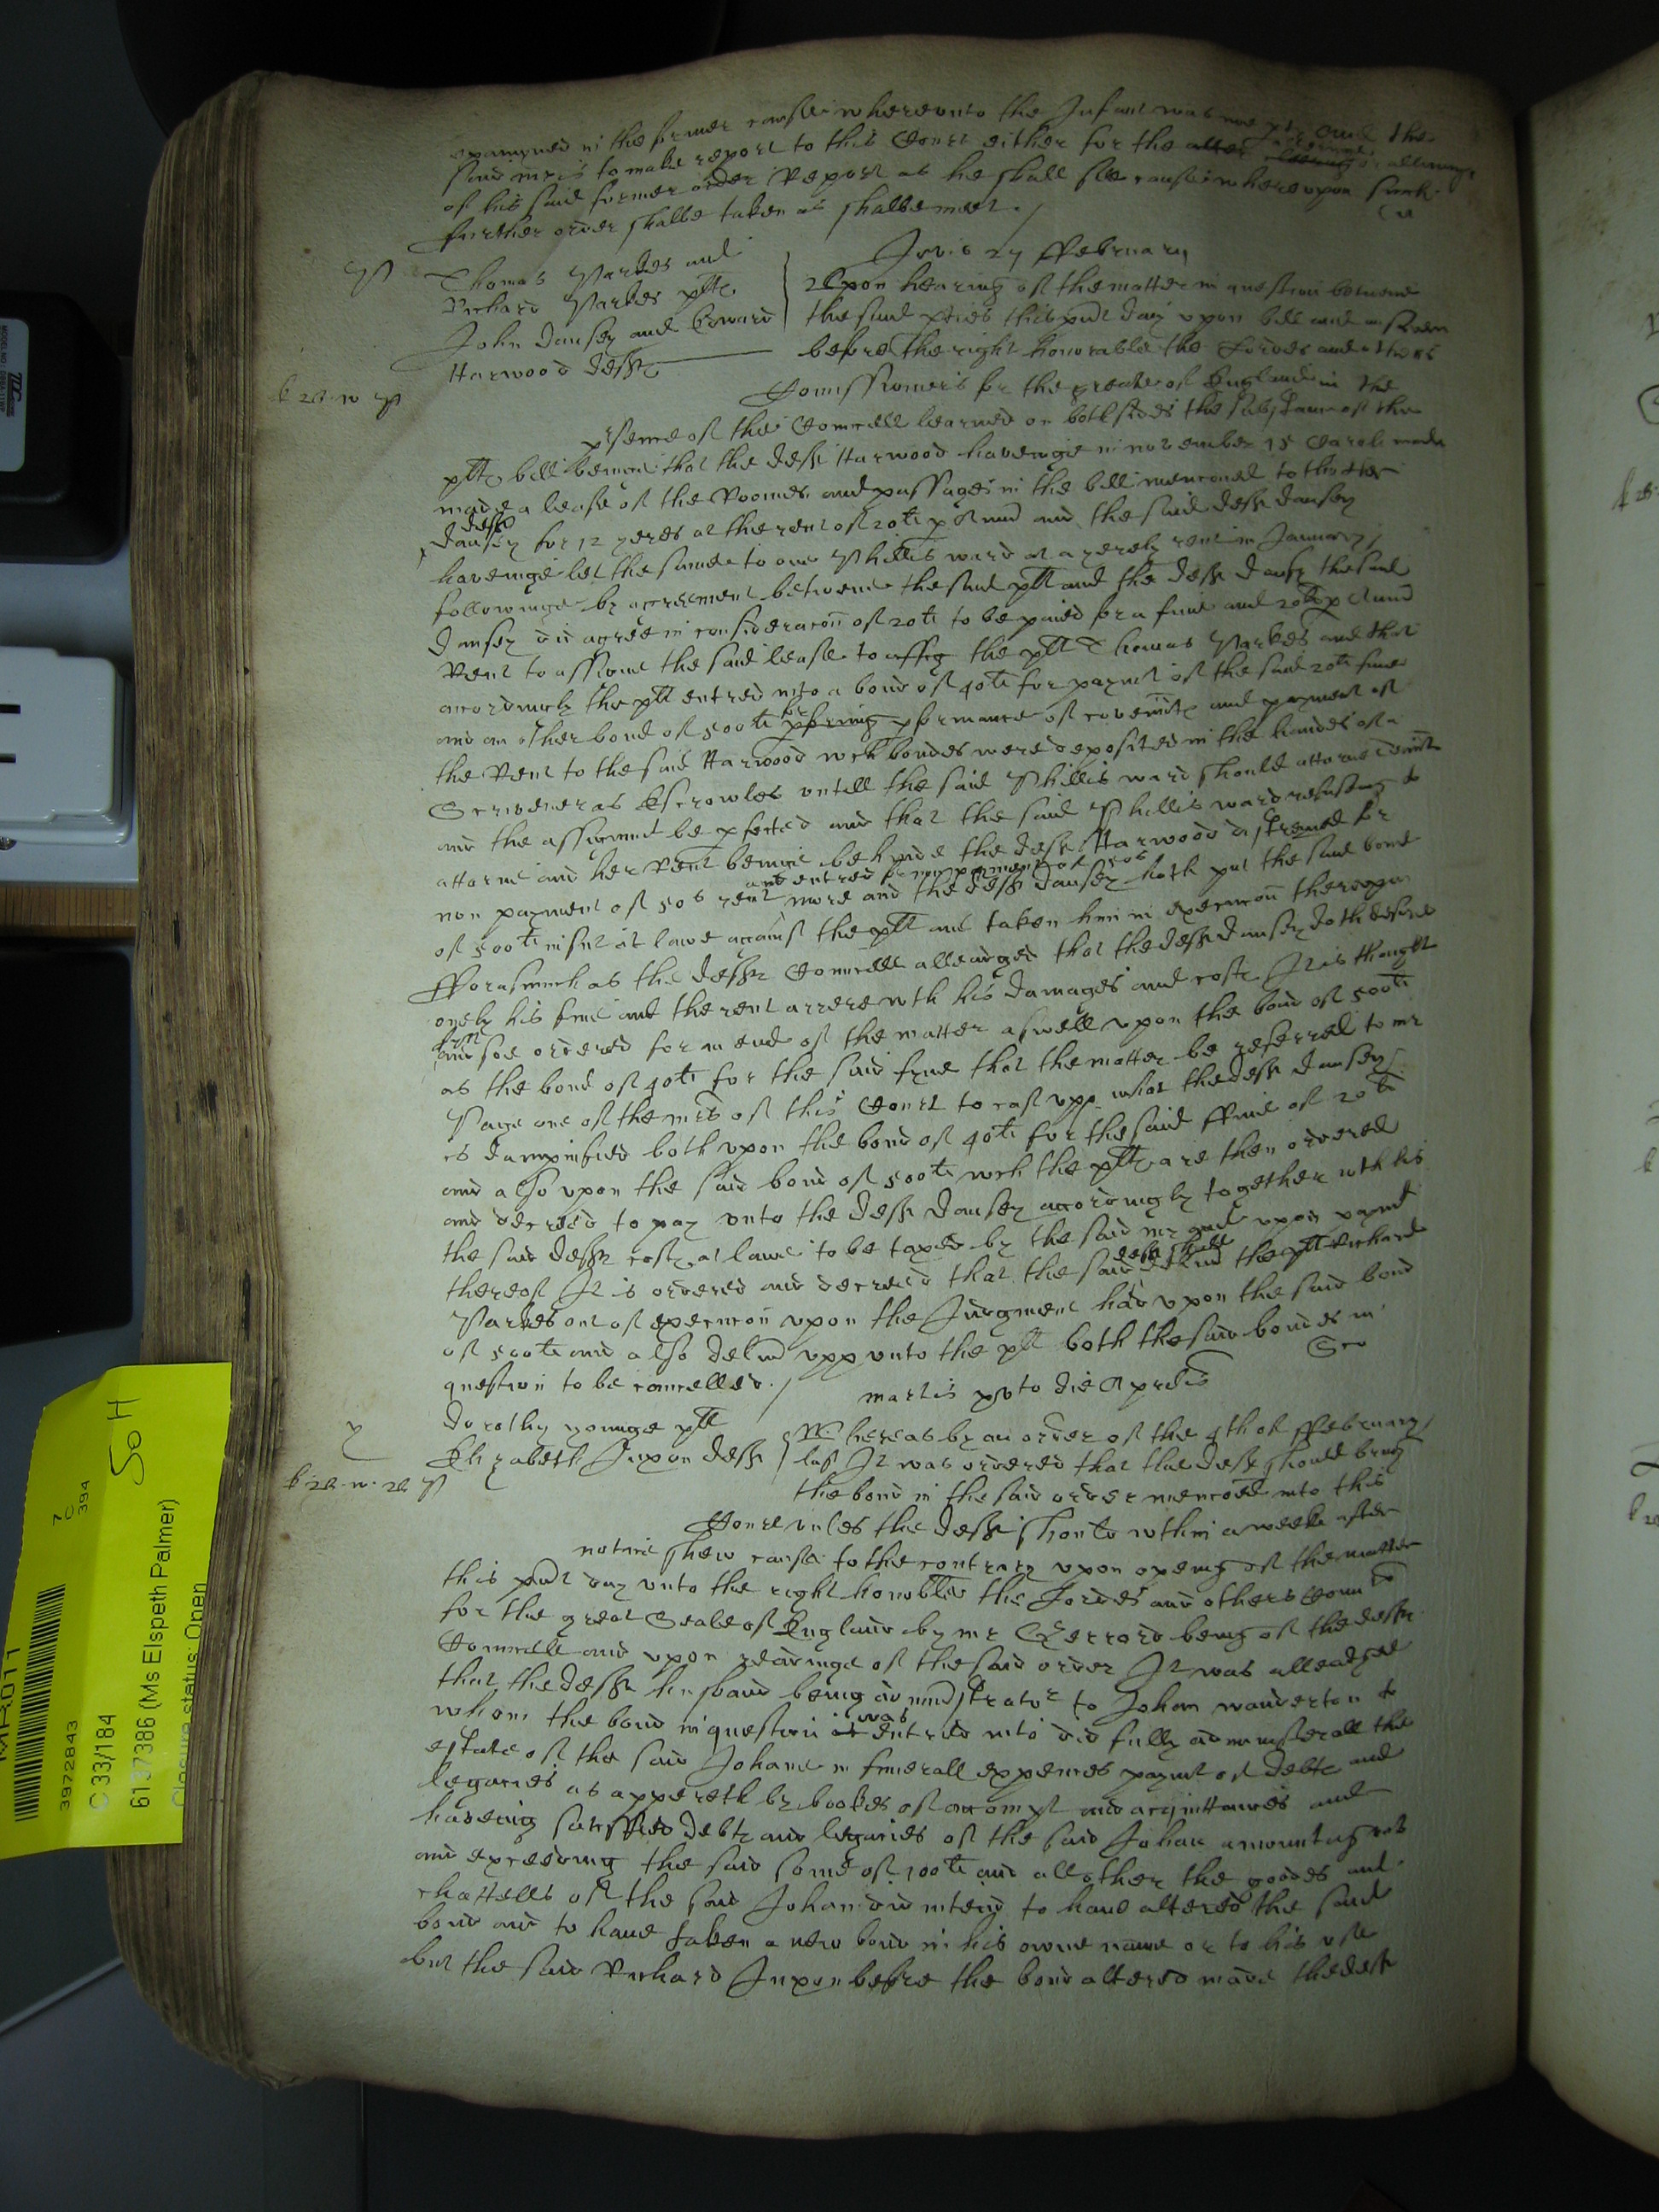 examyned in the former cause whereunto the Infant was not pty And the
said mr is to make report to this Court either for the alter or allowinge
of his said former order Report as he shall see cause whereupon such
further order shalbe taken as shalbe meet./
Jovis 27 ffebruary
Thomas Parkes and
Richard Parkes plts
John Dansey and Edward
Harwood defts
Upon hearing of the matter in question betweene
the said pties this pnt day upon bill and answer
before the right honorable the Lordes and others
Comissioners for the greate of England in the
psence of the Councell learned on both sides the substance of the
plts bill beinge that the deft Harwood haveinge in november 15 Caroli made
made a lease of the Roomes and passages in the bill menconed to the other
deft
Dansey for 12 yeres at the rent of 20li p Annu and the said deft Dansey
haveinge let the same to one Phillis ward at a yerely rent in January
followinge by agreement betweene the said plt and the deft Dansy the said
Dansey did agree in consideracon of 20li to be paied for a fine and 20li p Annu
Rent to assigne the said lease to the plt Thomas Parkes and that
accordingly the plt entred into a bond of 40li for paymt of the said 20li fine
and an other bond of 500li for pforming pformance of covents and payment of
the Rent to the said Harwood wch bondes were deposited in the handes of a
Scrivener as Escrowles untill the said Phillis ward should attorne
and the assignmt be pfected and that the said Phillis ward refusing to
attorne and her Rent beinge behinde the deft Harwood distreined for
and entred for non payment of 50s
non payment of 50s rent more and the deft Dansey hath put the said bond
of 500li in sut at lawe against the plt and taken him in execucon thereupon
fforasmuch as the defts Councell alleadged that the deft Dansey doth desire
onely his fine and the rent arrere wth his damages and costs It is thought
and soe ordered for an end of the matter aswell upon the bond of 500li
as the bond of 40li for the said fyne that the matter be referred to mr
Page one of the mrs of this Court to cast upp what the deft Dansey
is dampnified both upon the bond of 40li for the said ffine of 20li
and also upon the said bond of 500li wch the plts are then ordered
and decreed to pay unto the deft Dansey accordingly together wth his
the said defts costs at lawe to be taxed by the said mr and upon paymt
thereof It is ordered and decreed that the said deft shall the plt Richard
Parkes out of execucon upon the Judgment had upon the said bond
of 500li and also delivd upp unto the plt both the said bondes in
question to be cancelled./
martis die Aprilis
Dorothy younge plt
Elizabeth Juxon deft
Whereas by an order of the 4th of ffebruary
last It was ordered that the deft should bring
the bond in the said order menconed into this
Court unles the deft should wthin a weeke after
notice shew cause to the contrary upon opening of the matter
this pnt day unto the right honoble the Lordes and others Comrs
for the great Seale of England by mr Gerrard being of the defts
Councell and upon readinge of the said order It was alleadged
that the defts husband being administrator to Johan wanderton to
whom the bond in question was entred into did fully administer all the
estate of the said Johane in funerall expences paymt of debts and
legacies as appereth by bookes of accompt and acquittances and
haveing satisfied debts and legacies of the said Johan amounting
and exceeding the said some of 100li and all other the goodes and
chattells of the said Johan did intend to have altered the said
bond and to have taken a new bond in his owne name or to his use
but the said Richard Juxon before the bond altered made the deft
3972843
C 33/184
6137386 (Ms Elspeth Palmer)
Closure status: Open
7
C
394
SoH